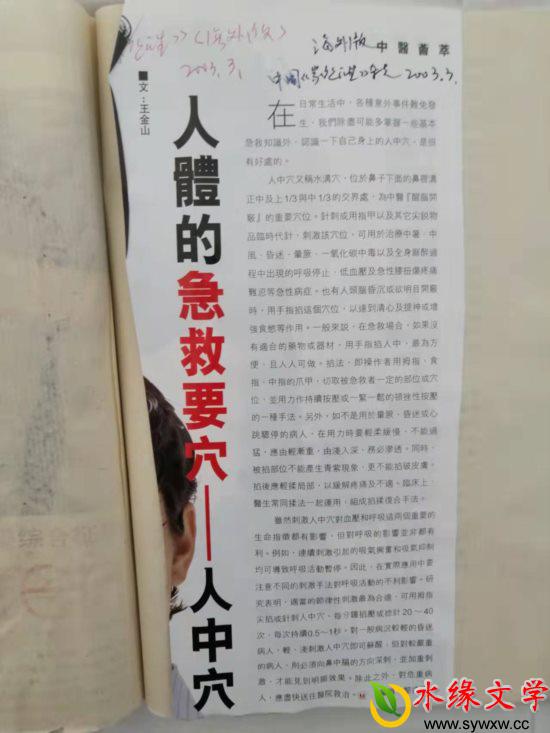 海外版
中国《养生》杂志 2003.3.
2003.3.
中醫薈萃
■文：王金山
人體的急救要穴——人中穴
在日常生活中，各種意外事件難免發
生，我們除盡可能多掌握一些基本
急救知識外，認識一下自己身上的人中穴，是很
有好處的。
人中穴又稱水溝穴，位於鼻子下面的鼻唇溝
正中及上1/3與中1/3的交界處，為中醫『醒腦開
竅』的重要穴位。針刺或用指甲以及其它尖鋭物
品臨時代針，刺激該穴位，可用於治療中暑、中
風、昏迷、暈厥、一氧化碳中毒以及全身麻醉過
程中出現的呼吸停止，低血壓及急性腰扭傷疼痛
難忍等急性病症。也有人頭腦昏沉或欲明目開竅
時，用手指掐這個穴位，以達到清心及提神或增
強食慾等作用。一般來説，在急救場合，如果沒
有適合的藥物或器材，用手指掐人中，最為方
便，且人人可做。掐法，即操作者用拇指、食
指、中指的爪甲，切取被急救者一定的部位或穴
位，並用力作持續按壓或一緊一鬆的頓挫性按壓
的一種手法。另外，如不是用於暈厥、昏迷或心
跳驟停的病人，在用力時要輕柔緩慢，不能過
猛，應由輕漸重，由淺入深，務必滲透。同時，
被掐部位不能產生青紫現象，更不能掐破皮膚。
掐後應輕揉局部，以緩解疼痛及不適。臨床上，
醫生常同揉法一起運用，組成掐揉復合手法。
雖然刺激人中穴對血壓和呼吸這兩個重要的
生命指徵都有影響，但對呼吸的影響並非都有
利。例如，連續刺激引起的吸氣興奮和吸氣抑制
均可導致呼吸活動暫停。因此，在實際應用中要
注意不同的刺激手法對呼吸活動的不利影響。研
究表明，適當的節律性刺激最為合適，可用拇指
尖掐或針刺人中穴，每分鐘掐壓或捻針20～40
次，每次持續0.5～1秒。對一般病況較輕的昏迷
病人，輕、淺刺激人中穴即可蘇醒，但對較嚴重
的病人，則必須向鼻中隔的方向深刺，並加重刺
激，才能見到明顯效果。除此之外，對危重病
人，應盡快送往醫院救治。
综合征
水缘文学
www.sywxw.com